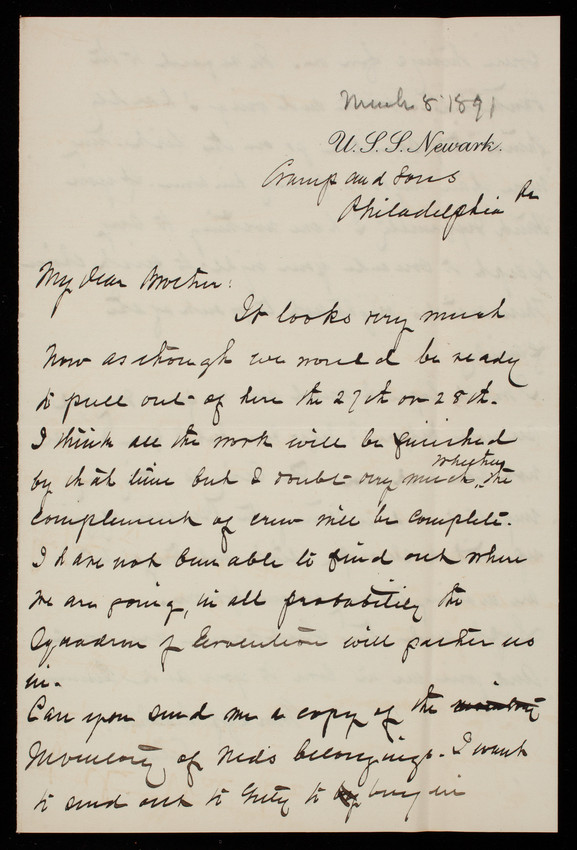 March 8 1891
U.S.S. Newark.
Cramp and Sons
Philadelphia Pa
My Dear Brother:
It looks very much
now as though we would be ready
to pull out of here the 27th or 28th.
I think all the work will be finished
by that time but I doubt very much whether the
complement of crew will be complete.
I have not been able to find out where
we are going, in all probability the
Squadron of Evolution will gather us
in.
Can you send me a copy of the
Inventory of Neds belongings. I want
to send out to to buy in